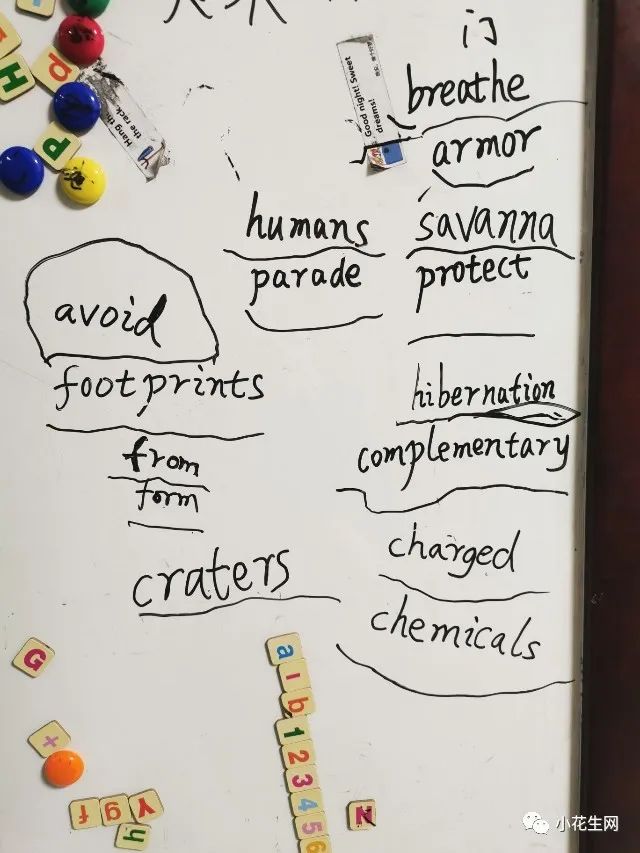 门
breathe
armor
humans
savanna
parade
protect
avoid
footprints
hibernation
from
complementary
form
charged
craters
chemicals
Good night! Sweet
dreams!
Hang th
the rack.
H
p
P
G
+
Y g f
h
a
1
b
1
2
3
4
5
6
N
小花生网